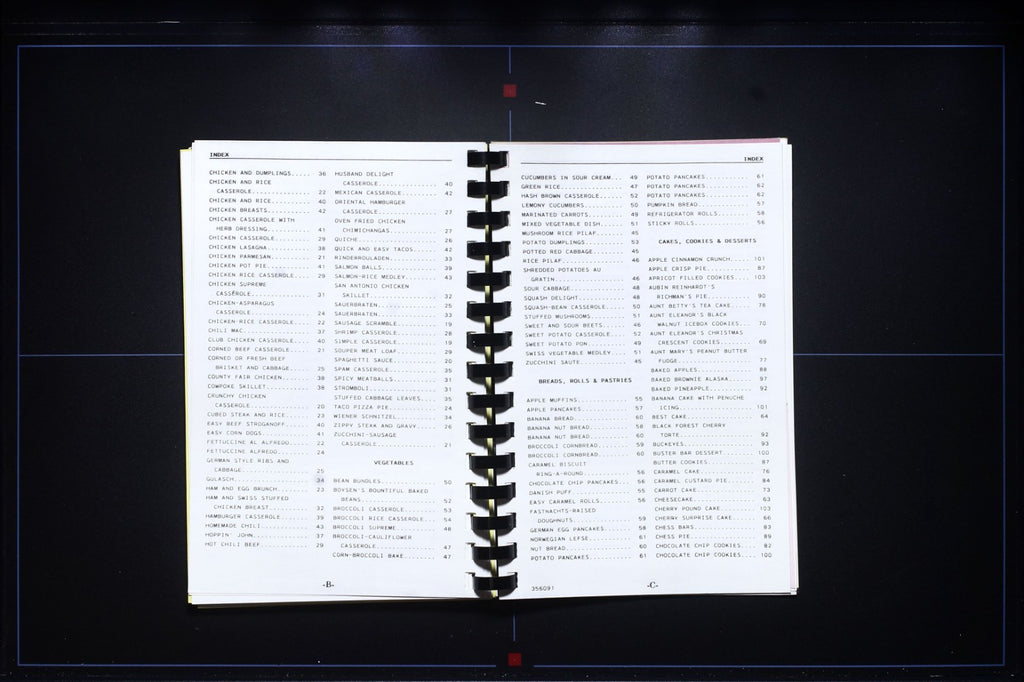 INDEX
CHICKEN AND DUMPLINGS..... 36
CHICKEN AND RICE
CASSEROLE............... 22
CHICKEN AND RICE.......... 40
CHICKEN BREASTS........... 42
CHICKEN CASSEROLE WITH
HERB DRESSING........... 41
CHICKEN CASSEROLE......... 29
CHICKEN LASAGNA........... 38
CHICKEN PARMESAN.......... 21
CHICKEN POT PIE........... 41
CHICKEN RICE CASSEROLE.... 29
CHICKEN SUPREME
CASSEROLE............... 31
CHICKEN-ASPARAGUS
CASSEROLE............... 24
CHICKEN-RICE CASSEROLE.... 22
CHILI MAC................. 37
CLUB CHICKEN CASSEROLE.... 40
CORNED BEEF CASSEROLE..... 21
CORNED OR FRESH BEEF
BRISKET AND CABBAGE..... 25
COUNTY FAIR CHICKEN....... 38
COWPOKE SKILLET........... 38
CRUNCHY CHICKEN
CASSEROLE............... 20
CUBED STEAK AND RICE...... 23
EASY BEEF STROGANOFF...... 40
EASY CORN DOGS............ 41
FETTUCCINE AL ALFREDO..... 22
FETTUCCINE ALFREDO........ 24
GERMAN STYLE RIBS AND
CABBAGE................. 25
GULASCH................... 34
HAM AND EGG BRUNCH........ 23
HAM AND SWISS STUFFED
CHICKEN BREAST.......... 32
HAMBURGER CASSEROLE....... 39
HOMEMADE CHILI............ 43
HOPPIN' JOHN.............. 37
HOT CHILI BEEF............ 29
HUSBAND DELIGHT
CASSEROLE............... 40
MEXICAN CASSEROLE......... 42
ORIENTAL HAMBURGER
CASSEROLE............... 27
OVEN FRIED CHICKEN
CHIMICHANGAS............ 27
QUICHE.................... 26
QUICK AND EASY TACOS...... 42
RINDERROULADEN............ 33
SALMON BALLS.............. 39
SALMON-RICE MEDLEY........ 43
SAN ANTONIO CHICKEN
SKILLET................. 32
SAUERBRATEN............... 25
SAUERBRATEN............... 33
SAUSAGE SCRAMBLE.......... 19
SHRIMP CASSEROLE.......... 28
SIMPLE CASSEROLE.......... 19
SOUPER MEAT LOAF.......... 29
SPAGHETTI SAUCE........... 20
SPAM CASSEROLE............ 35
SPICY MEATBALLS........... 31
STROMBOLI................. 31
STUFFED CABBAGE LEAVES.... 35
TACO PIZZA PIE............ 24
WIENER SCHNITZEL.......... 34
ZIPPY STEAK AND GRAVY..... 26
ZUCCHINI-SAUSAGE
CASSEROLE............... 21
VEGETABLES
BEAN BUNDLES.............. 50
BOYSEN'S BOUNTIFUL BAKED
BEANS................... 52
BROCCOLI CASSEROLE........ 53
BROCCOLI RICE CASSEROLE... 54
BROCCOLI SUPREME.......... 48
BROCCOLI-CAULIFLOWER
CASSEROLE............... 47
CORN-BROCCOLI BAKE........ 47
-B-
INDEX
CUCUMBERS IN SOUR CREAM... 49
GREEN RICE................ 47
HASH BROWN CASSEROLE...... 52
LEMONY CUCUMBERS.......... 50
MARINATED CARROTS......... 49
MIXED VEGETABLE DISH...... 51
MUSHROOM RICE PILAF....... 45
POTATO DUMPLINGS.......... 53
POTTED RED CABBAGE........ 45
RICE PILAF................ 46
SHREDDED POTATOES AU
GRATIN.................. 46
SOUR CABBAGE.............. 48
SQUASH DELIGHT............ 48
SQUASH-BEAN CASSEROLE..... 50
STUFFED MUSHROOMS......... 51
SWEET AND SOUR BEETS...... 46
SWEET POTATO CASSEROLE.... 52
SWEET POTATO PON.......... 49
SWISS VEGETABLE MEDLEY.... 51
ZUCCHINI SAUTE............ 45
BREADS, ROLLS & PASTRIES
APPLE MUFFINS............. 55
APPLE PANCAKES............ 57
BANANA BREAD.............. 60
BANANA NUT BREAD.......... 58
BANANA NUT BREAD.......... 60
BROCCOLI CORNBREAD........ 59
BROCCOLI CORNBREAD........ 60
CARAMEL BISCUIT
RING-A-ROUND............ 56
CHOCOLATE CHIP PANCAKES... 56
DANISH PUFF............... 55
EASY CARAMEL ROLLS........ 56
FASTNACHTS-RAISED
DOUGHNUTS............... 59
GERMAN EGG PANCAKES....... 58
NORWEGIAN LEFSE........... 61
NUT BREAD................. 60
POTATO PANCAKES........... 61
POTATO PANCAKES........... 61
POTATO PANCAKES........... 62
POTATO PANCAKES........... 62
PUMPKIN BREAD............. 57
REFRIGERATOR ROLLS........ 58
STICKY ROLLS.............. 56
CAKES, COOKIES & DESSERTS
APPLE CINNAMON CRUNCH..... 101
APPLE CRISP PIE........... 87
APRICOT FILLED COOKIES.... 103
AUBIN REINHARDT'S
RICHMAN'S PIE........... 90
AUNT BETTY'S TEA CAKE..... 78
AUNT ELEANOR'S BLACK
WALNUT ICEBOX COOKIES... 70
AUNT ELEANOR'S CHRISTMAS
CRESCENT COOKIES........ 69
AUNT MARY'S PEANUT BUTTER
FUDGE................... 77
BAKED APPLES.............. 88
BAKED BROWNIE ALASKA...... 97
BAKED PINEAPPLE........... 92
BANANA CAKE WITH PENUCHE
ICING................... 101
BEST CAKE................. 64
BLACK FOREST CHERRY
TORTE................... 92
BUCKEYES.................. 93
BUSTER BAR DESSERT........ 100
BUTTER COOKIES............ 87
CARAMEL CAKE.............. 76
CARAMEL CUSTARD PIE....... 84
CARROT CAKE............... 73
CHEESECAKE................ 63
CHERRY POUND CAKE......... 103
CHERRY SURPRISE CAKE...... 66
CHESS BARS................ 83
CHESS PIE................. 89
CHOCOLATE CHIP COOKIES.... 82
CHOCOLATE CHIP COOKIES.... 100
356091
-C-